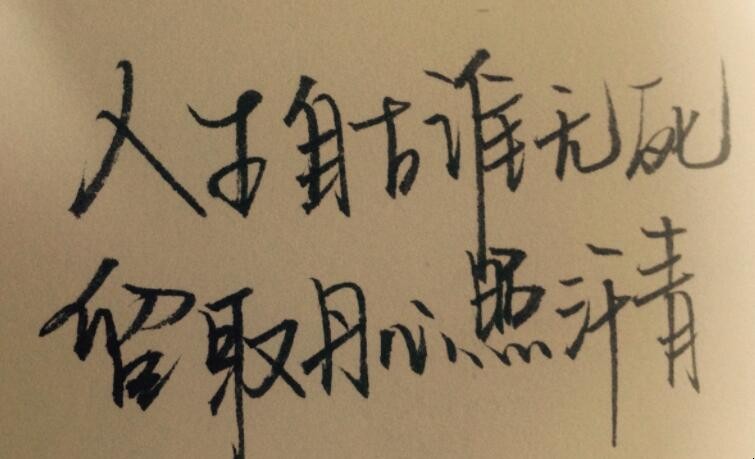 人生自古谁无死
留取丹心照汗青